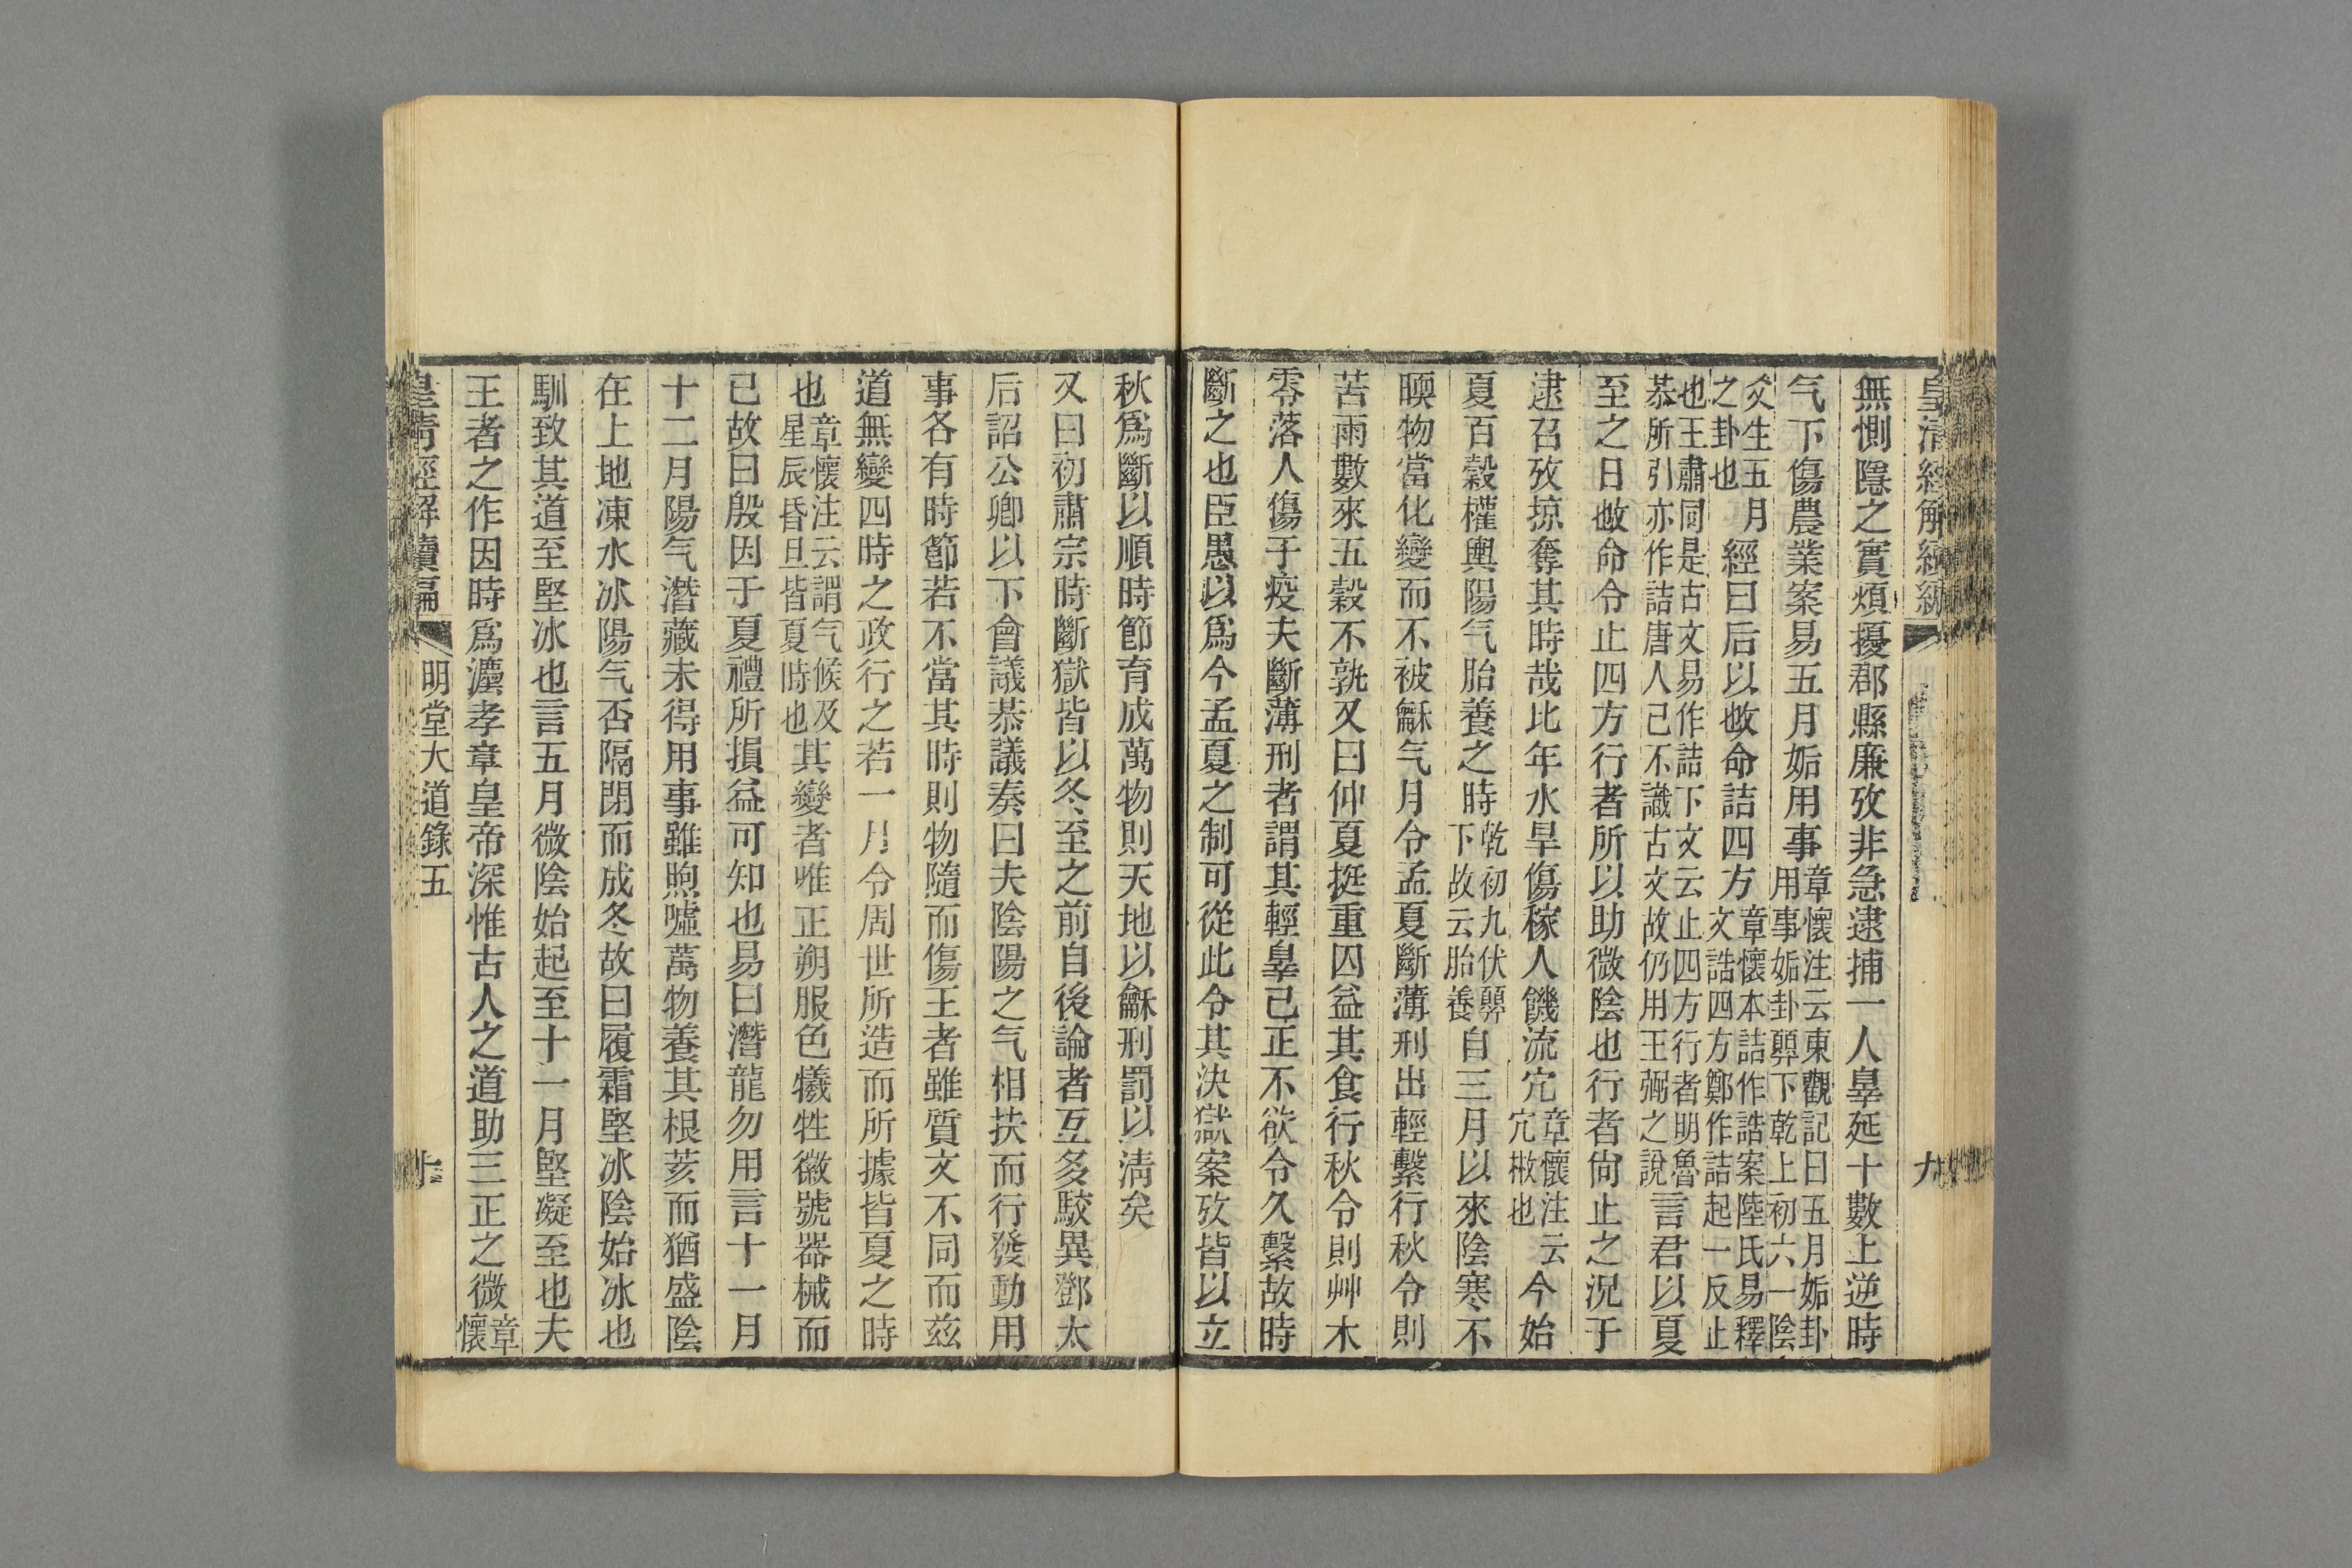 無惻隱之實煩擾郡縣廉攷非急逮捕一人辠延十數上逆時
气下傷農業案易五月姤用事章懷注云東觀記曰五月姤卦用事姤卦巽下乾上初六一陰
爻生五月之卦也經曰后以施命詰四方章懷本詰作誥案陸氏易釋文誥四方鄭作詰起一反止
也王肅同是古文易作詰下文云止四方行者明魯恭所引亦作詰唐人已不識古文故仍用王弼之說言君以夏
至之日施命令止四方行者所以助微陰也行者尙止之況于
逮召攷掠奪其時哉比年水旱傷稼人饑流宂章懷注云宂散也今始
夏百穀權輿陽气胎養之時乾初九伏巽下故云胎養自三月以來陰寒不
暝物當化變而不被龢气月令孟夏斷薄刑出輕繫行秋令則
苦雨數來五穀不孰又曰仲夏挺重囚益其食行秋令則艸木
零落人傷于疫夫斷薄刑者謂其輕辠已正不欲令久繫故時
斷之也臣愚以爲今孟夏之制可從此令其決獄案攷皆以立
秋爲斷以順時節育成萬物則天地以龢刑罰以淸矣
又曰初肅宗時斷獄皆以冬至之前自後論者互多駮異鄧太
后詔公卿以下會議恭議奏曰夫陰陽之气相扶而行發動用
事各有時節若不當其時則物隨而傷王者雖質文不同而茲
道無變四時之政行之若一月令周世所造而所據皆夏之時
也章懷注云謂气候及星辰昏旦皆夏時也其變者唯正朔服色犧牲徽號器械而
已故曰殷因于夏禮所損益可知也易曰潛龍勿用言十一月
十二月陽气潛藏未得用事雖煦噓萬物養其根荄而猶盛陰
在上地凍水冰陽气否隔閉而成冬故曰履霜堅冰陰始冰也
馴致其道至堅冰也言五月微陰始起至十一月堅凝至也夫
王者之作因時爲灋孝章皇帝深惟古人之道助三正之微章懷
皇淸經解續編
明堂大道錄五
九